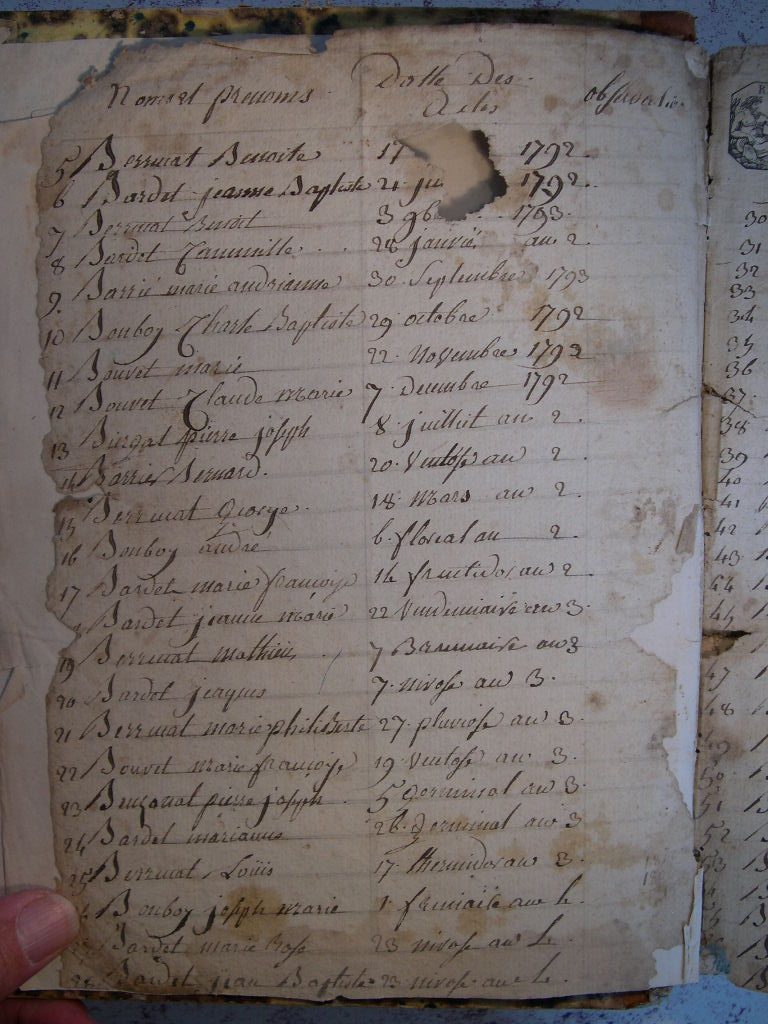 Noms et prenoms Datte Des Actes observation
5 Berruat Benoite 17 1792
6 Bardet jeanne Baptiste 21 ju 1792
7 Berruat Benoit 3 9b 1793
8 Bardet Cammille 28 janvié au 2
9 Barrié marie andrianne 30 Septembre 1793
10 Bouboy Charle Baptiste 29 octobre 1792
11 Bouvet marie 22 Novembre 1792
12 Bouvet Claude marie 7 Decembre 1792
13 pierre joseph 8 juillit an 2
14 Barrier Bernard 20 Ventose an 2
15 Berruat George 18 Mars an 2
16 Bouboy andré 6 floreal an 2
17 Bardet marie françoise 14 fructidor an 2
Bardet jeanne marie 22 Vendemiaire an 3
19 Berruat mathieu 7 Brumaire an 3
20 Bardet jacques 7 nivose an 3
21 Berruat marie philiberte 27 pluviose an 3
22 Bouvet marie françoise 19 Ventose an 3
23 pierre joseph 5 Germinal an 3
24 Bardet marianne 26 Germinal an 3
25 Berruat Louis 17 thermidor an 3
Bouboy joseph marie 1 an 4
Bardet marie Rose 23 nivose an 4
28 Bardet jean Baptiste 23 nivose an 4
30
31
32
33
34
35
36
37
38
39
40
41
42
43
44
45
47
48
49
50
51
52
53